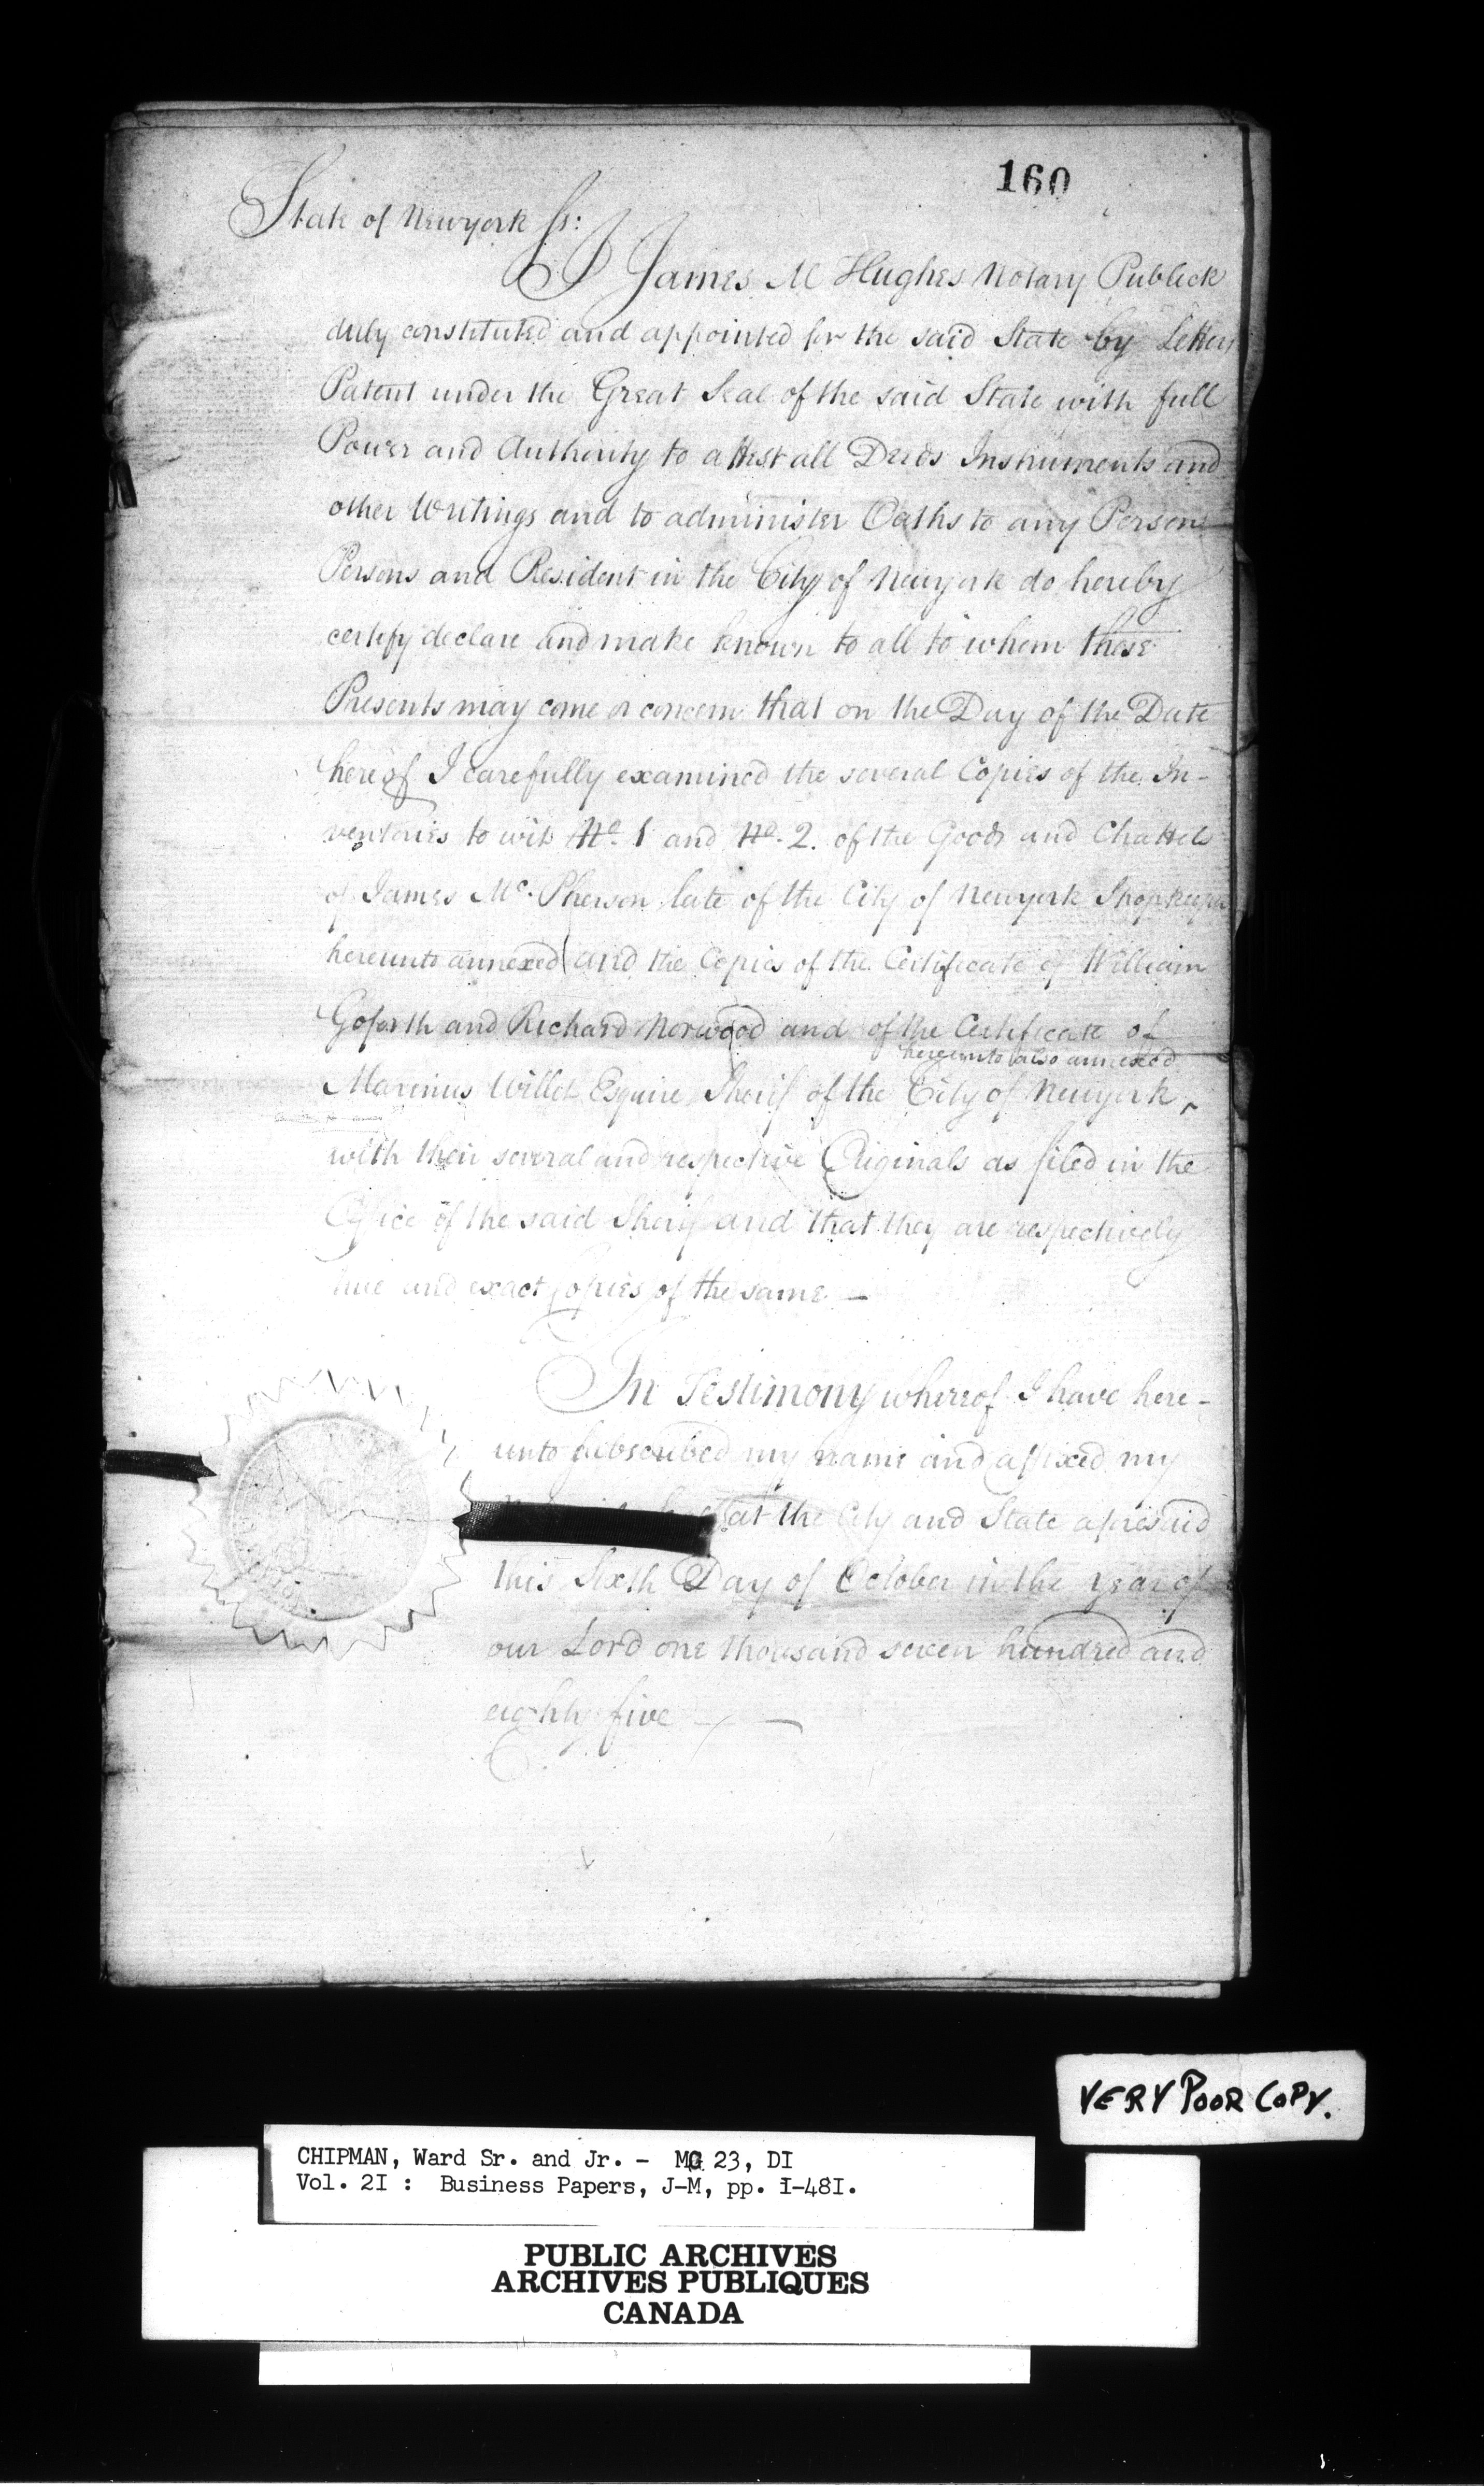 160
State of Newyork Ss:
I James M Hughes Notary Publick
duly constituted and appointed for the said State by Letters
Patent under the Great Seal of the said State with full
Power and Authority to attest all Deeds Instruments and
other Writings and to administer Oaths to any Person
Persons and Resident in the City of Newyork do hereby
certify declare and make known to all to whom these
Presents may come or concern that on the Day of the Date
hereof I carefully examined the several Copies of the In-
ventories to wit No. 1 and No. 2. of the Goods and Chattels
of James Mc. Pherson late of the City of Newyork Shopkeeper
hereunto annexed and the Copies of the Certificate of William
Goforth and Richard Norwood and of the Certificate of
hereunto also annexed
Marinus Willet Esquire Sherif of the City of Newyork ^
with their several and respective Originals as filed in the
Office of the said Sherif and that they are respectively
true and exact Copies of the same —
In Testimony whereof I have here-
unto subscribed my name and affixed my
at the City and State aforesaid
this Sixth Day of October in the Year of
our Lord one thousand seven hundred and
eighty five —
VERY POOR COPY.
CHIPMAN, Ward Sr. and Jr. - MG 23, DI
Vol. 2I : Business Papers, J-M, pp. I-48I.
PUBLIC ARCHIVES
ARCHIVES PUBLIQUES
CANADA